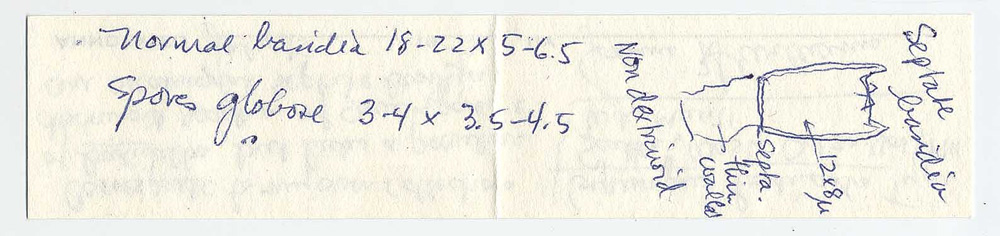 Normal basidia 18-22 x 5-6.5
Spores globose 3-4 x 3.5-4.5
Septate
basidia
12x8µ
Septa.
thin
walled
Non dextrinoid